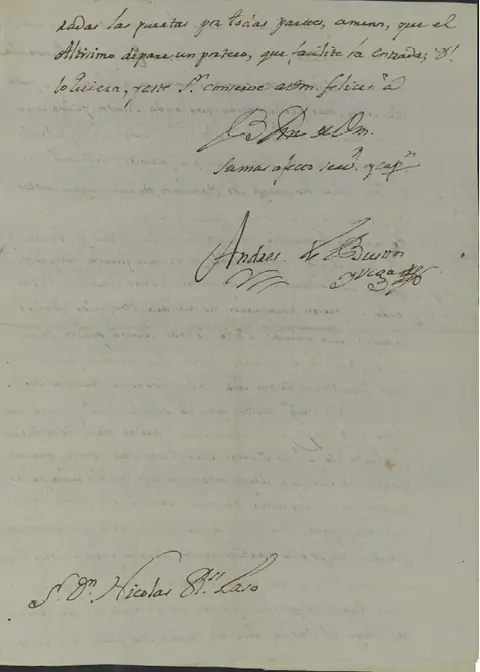 radas las puertas por todas partes, amenos, que el
Altisimo depare un portero, que facilite la entrada; D.s
lo quiera, y este S.r conserve a Vm. felices a.s
B L M de Vm.
su mas afecto serv.r y cap.n
Andres de Bustos
y Vega
S.r D.n Nicolas R.s Laso